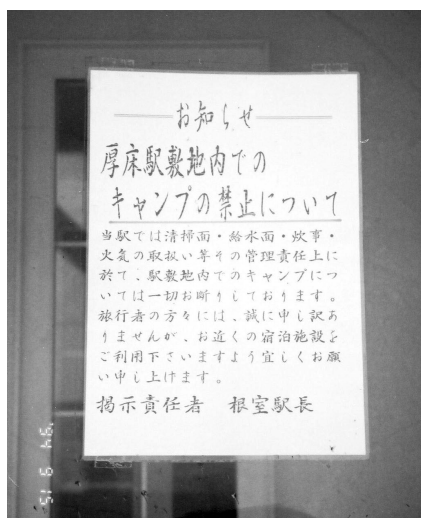 お知らせ
厚床駅敷地内での
キャンプの禁止について
当駅では清掃面・給水面・炊事・
火気の取扱い等その管理責任上に
於て、駅敷地内でのキャンプにつ
いては一切お断りしております。
旅行者の方々には、誠に申し訳あ
りませんが、お近くの宿泊施設を
ご利用下さいますよう宜しくお願
い申し上げます。
掲示責任者　根室駅長
'94 9 15